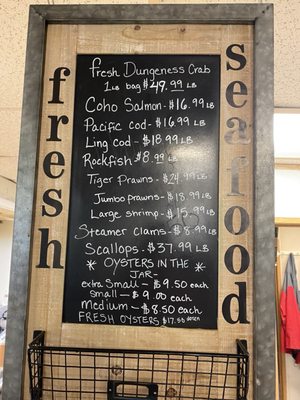 fresh
seafood
fresh Dungeness Crab
1LB bag $49.99 LB
Coho Salmon - $16.99 LB
Pacific cod - $16.99 LB
Ling Cod - $18.99 LB
Rockfish $8.99 LB
Tiger Prawns - $24.99 LB
Jumbo prawns - $18.99 LB
Large shrimp - $15.99 LB
Steamer Clams - $8.99 LB
Scallops - $37.99 LB
* OYSTERS IN THE *
JAR -
extra Small - $9.50 each
small - $9.00 each
medium - $8.50 each
FRESH OYSTERS $17.50 DOZEN